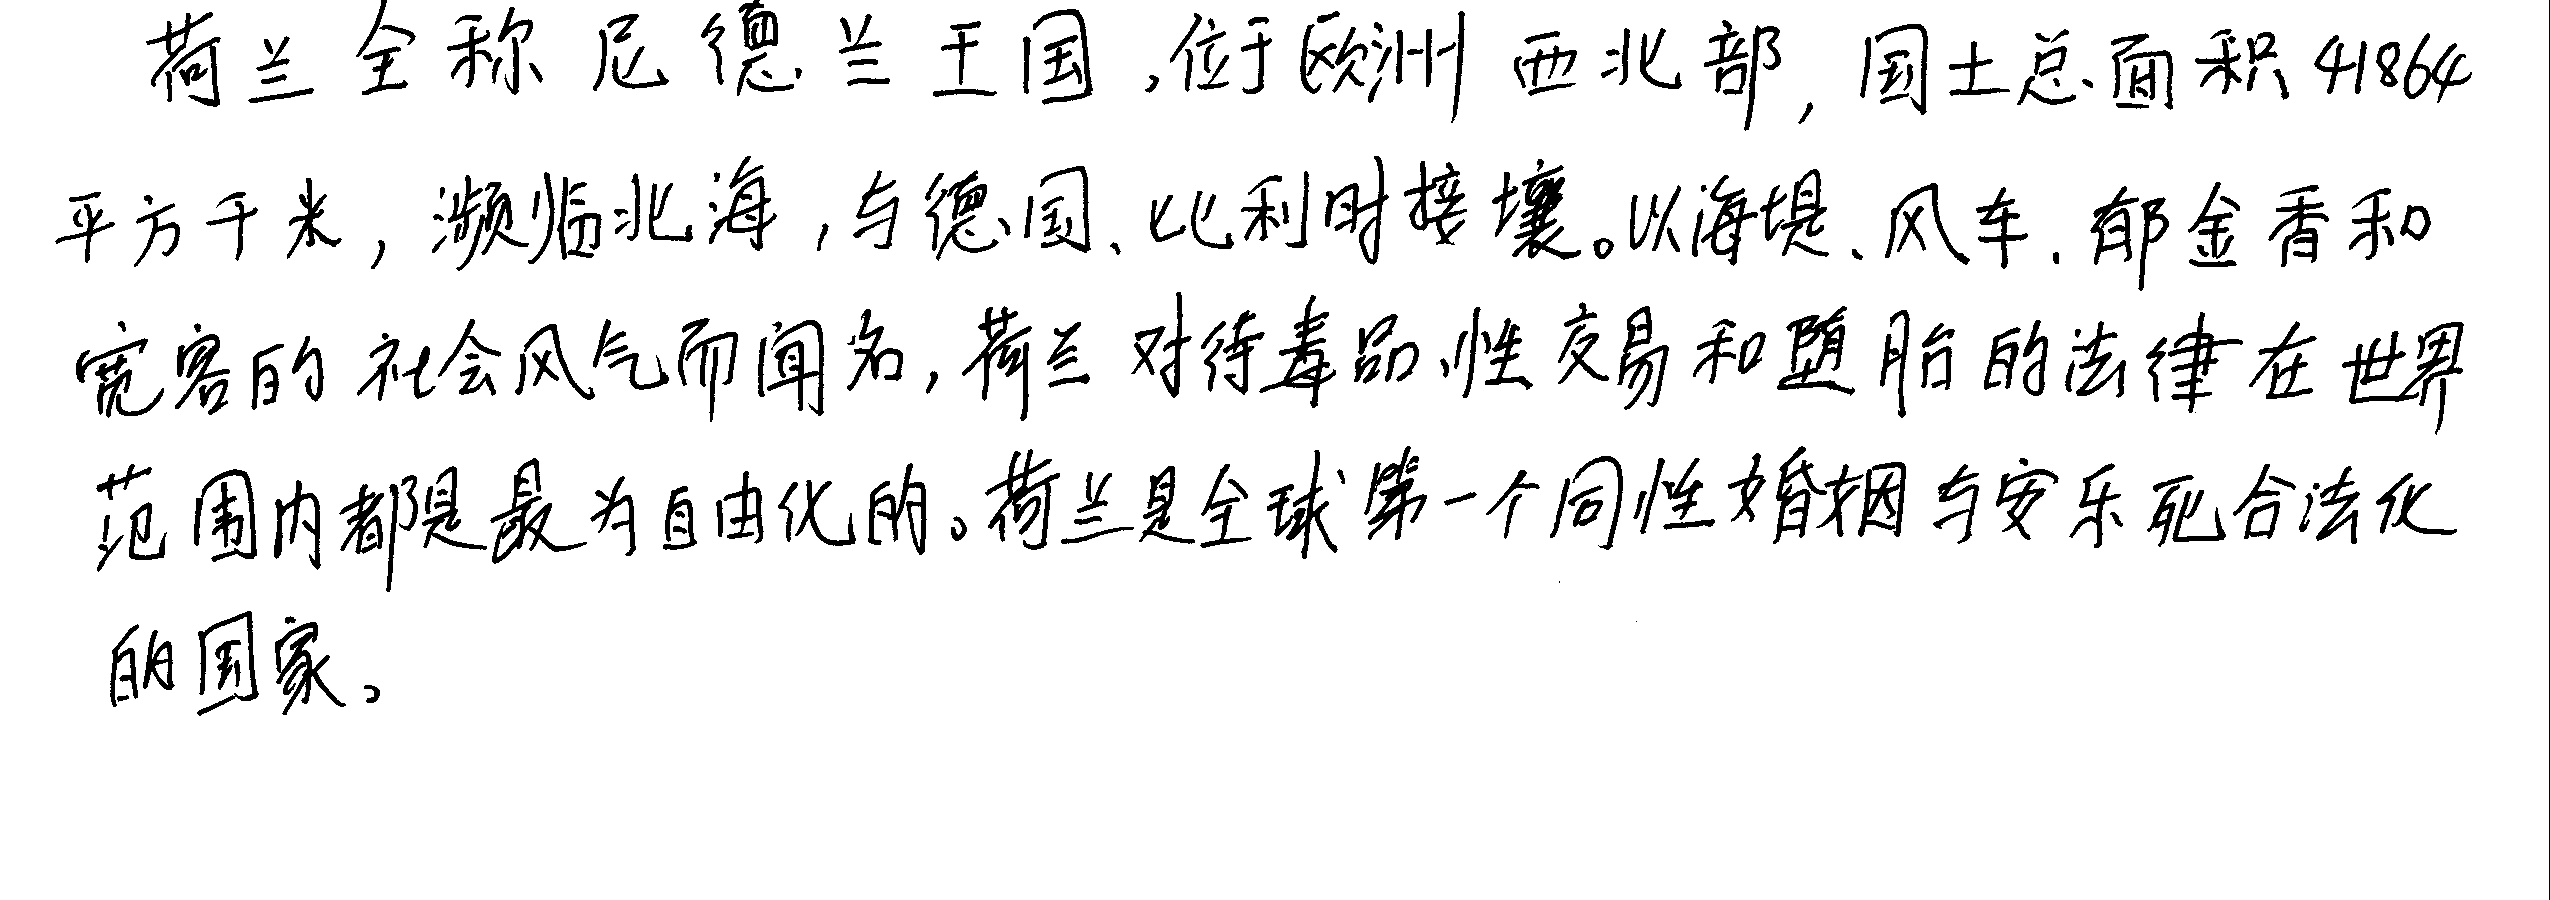 荷兰全称尼德兰王国,位于欧洲西北部,国土总面积41864
平方千米,濒临北海,与德国、比利时接壤。以海堤、风车、郁金香和
宽容的社会风气而闻名,荷兰对待毒品、性交易和堕胎的法律在世界
范围内都是最为自由化的。荷兰是全球第一个同性婚姻与安乐死合法化
的国家。